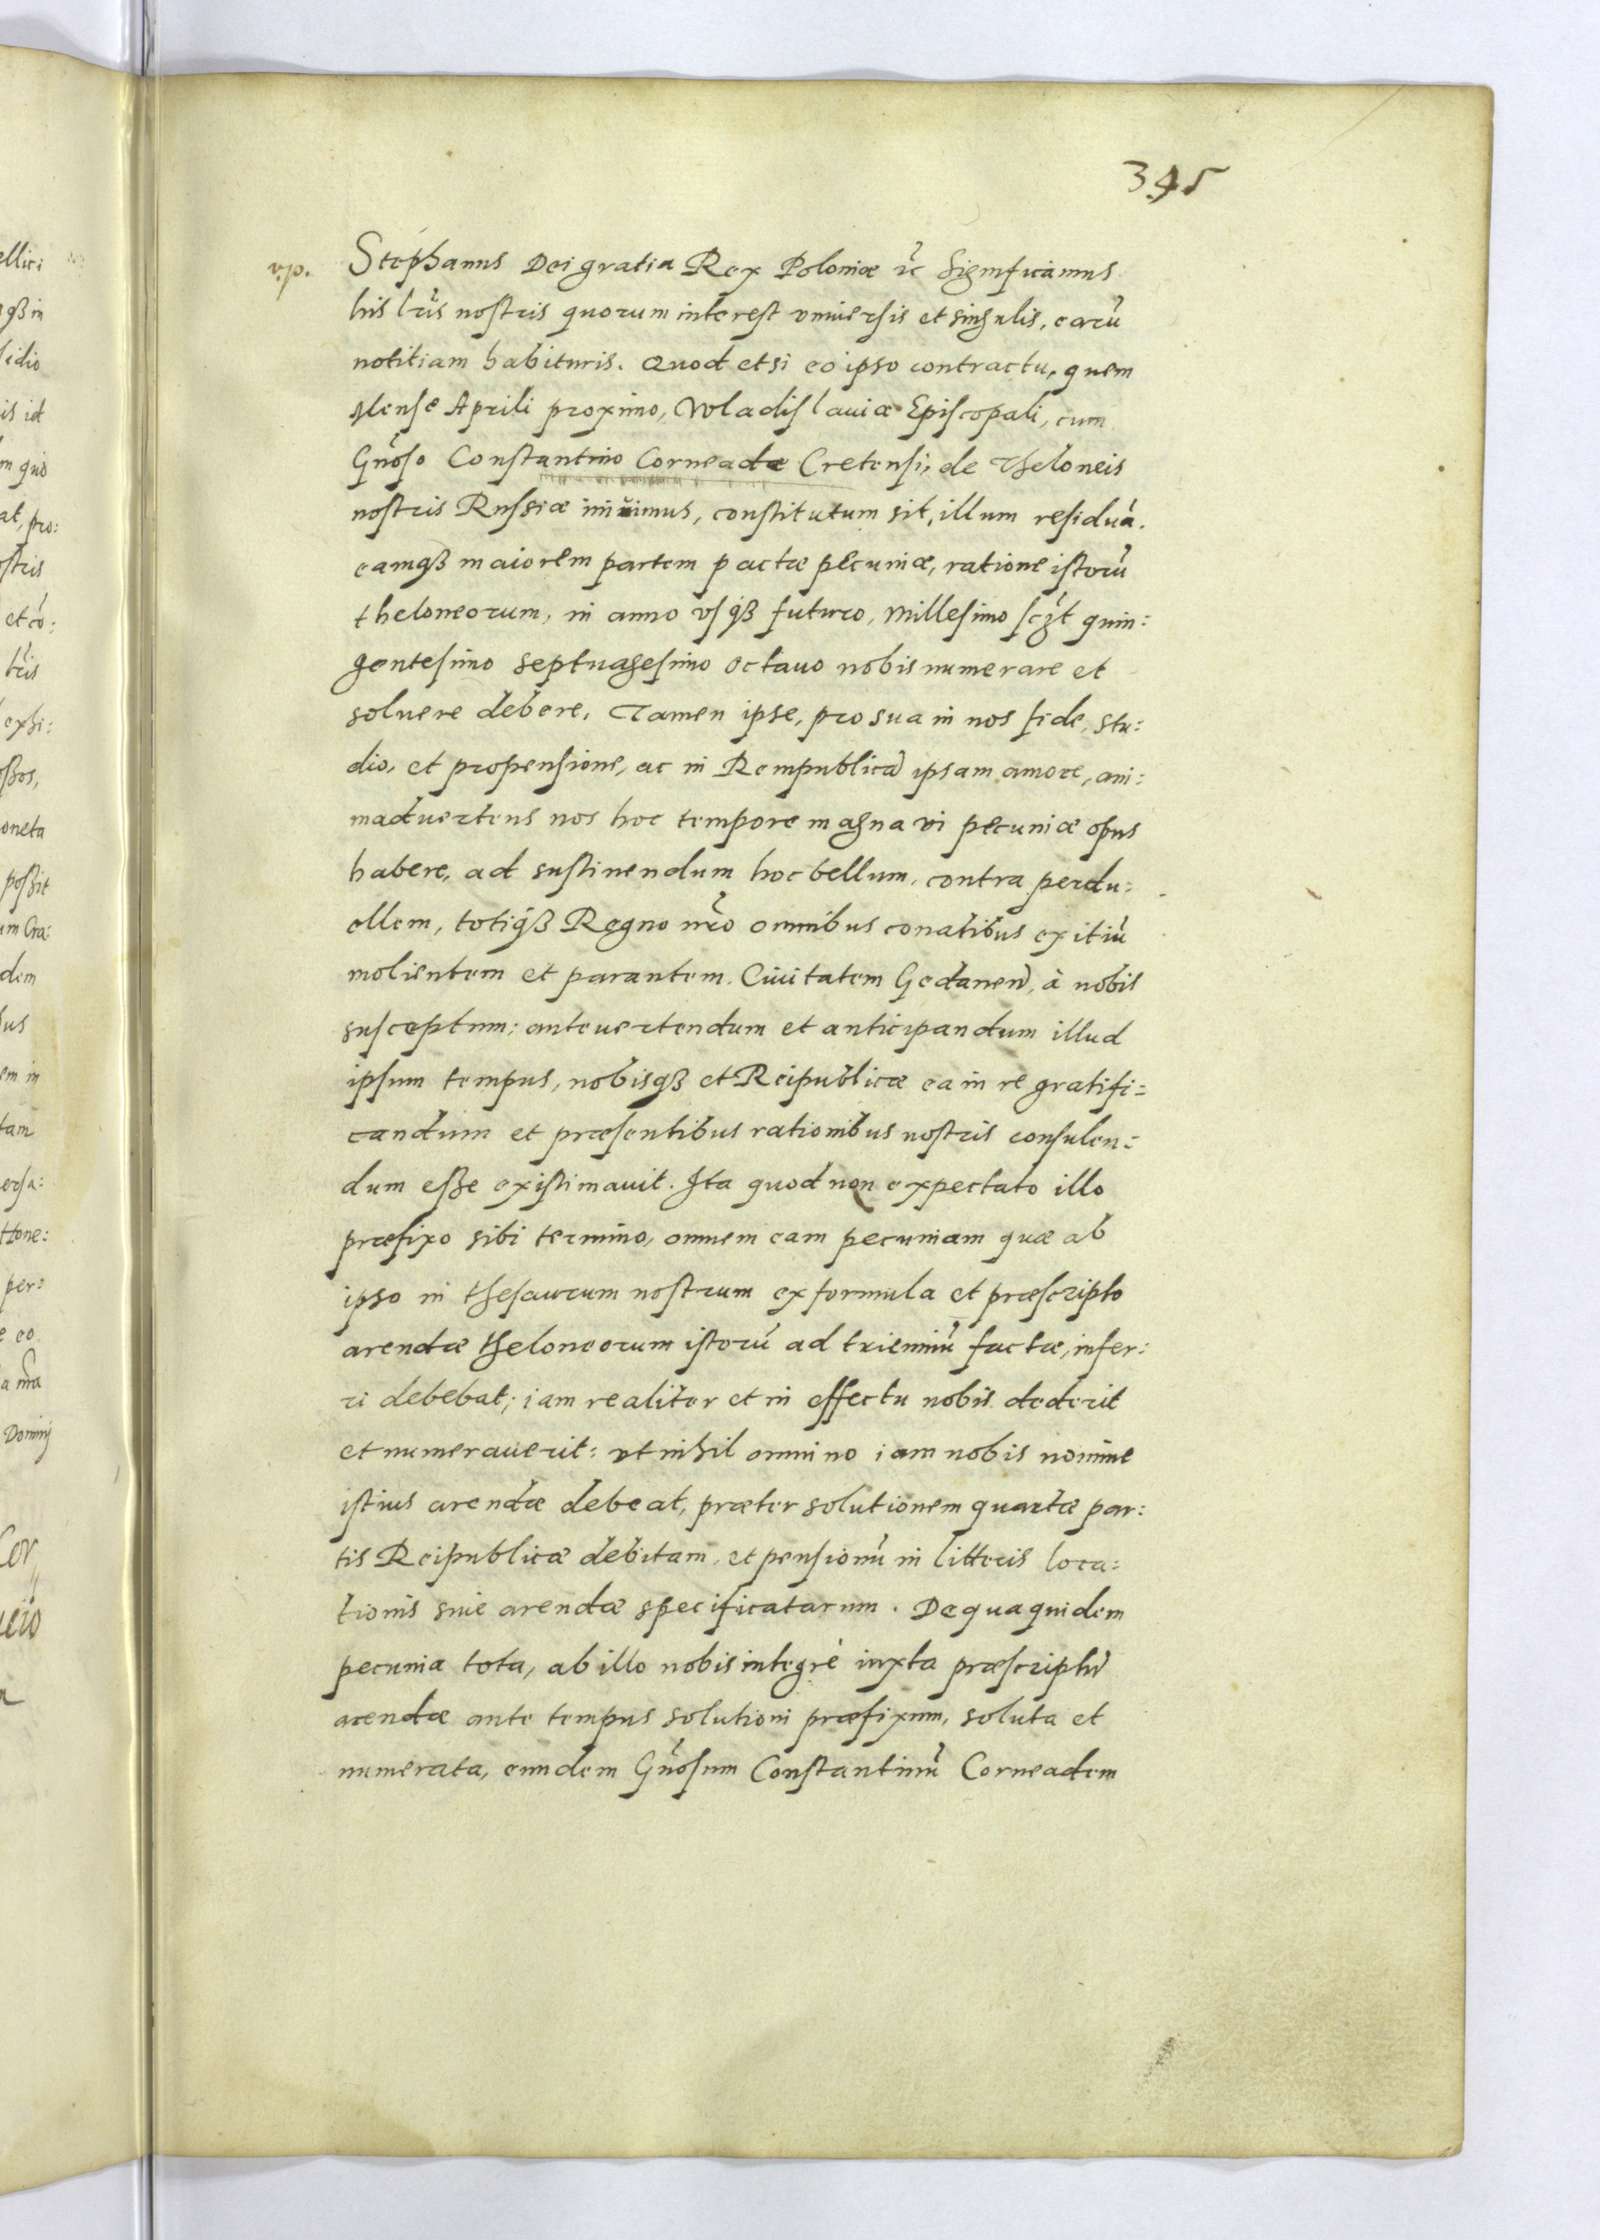 395
v.p.
Stephanus Dei gratia Rex Poloniæ ĩc Significamus
his lr̃is nostris quorum interest vniuersis et singulis, earũ
notitiam habituris. Quod etsi eo ipso contractu, quem
Mense Aprili proximo, Wladislauiæ Episcopali, cum
Gñoso Constantino Corneade Cretensi, de Theloneis
nostris Russiæ iniuimus, constitutum sit, illum residuã.
eamqꝫ maiorem partem pactæ pecuniæ, ratione istorũ
theloneorum, in anno vsqꝫ futuro, Millesimo sczt quin:
gentesimo septuagesimo octauo nobis numerare et
soluere debere, Tamen ipse, pro sua in nos fide, stu:
dio, et propensione, ac in Rempublicã ipsam amore, ani:
maduertens nos hoc tempore magna vi pecuniæ opus
habere, ad sustinendum hoc bellum, contra perdu:
ellem, totiqꝫ Regno nr̃o omnibus conatibus exitiũ
molientem et parantem. Ciuitatem Gedaneñ, à nobis
susceptum: anteuertendum et anticipandum illud
ipsum tempus, nobisqꝫ et Reipublicæ ea in re gratifi:
candum et præsentibus rationibus nostris consulen:
dum esse existimauit. Ita quod non expectato illo
præfixo sibi termino, omnem eam pecuniam quæ ab
ipso in thesaurum nostrum ex formula et præscripto
arendæ theloneorum istorũ ad trienniũ factæ, infer:
ri debebat; iam realiter et in effectu nobis dederit
et numerauerit: vt nihil omnino iam nobis nomine
istius arendæ debeat, præter solutionem quartæ par:
tis Reipublicæ debitam, et pensionũ in litteris loca:
tionis siue arendæ specificatarum. De qua quidem
pecunia tota, ab illo nobis integrè iuxta præscriptũ
arendæ ante tempus solutioni præfixum, soluta et
numerata, eundem Gñosum Constantinũ Corneadem